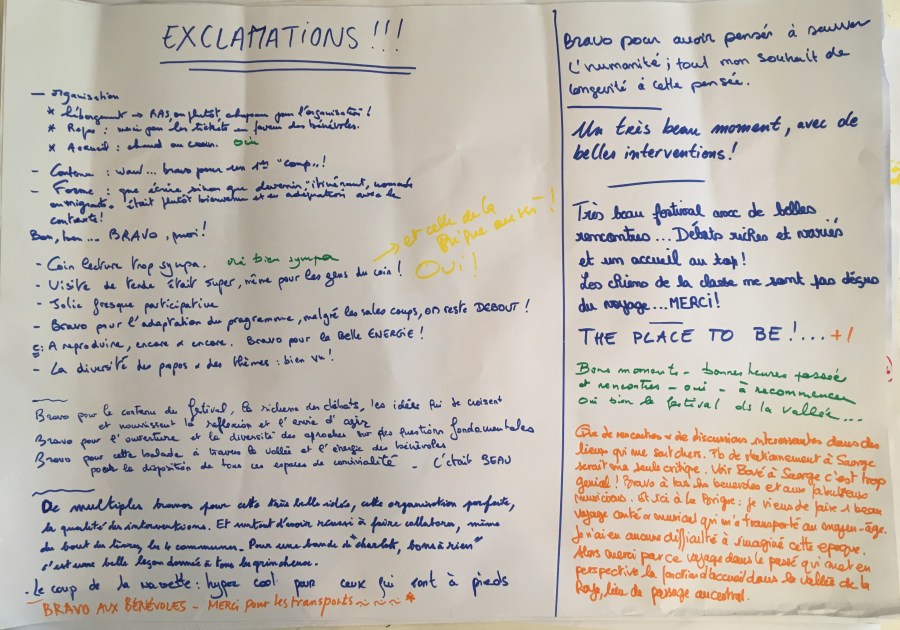 EXCLAMATIONS !!!
— organisation
* hébergement → RAS, ou plutôt, chapeau pour l'organisation !
* Repas : merci pour les tickets en faveur des bénévoles.
* Accueil : chaud au coeur. oui
- Contenu : waw!... bravo pour un 1er "coup.." !
- Forme : que écrire sinon que devenir "itinérant, nomade
ou migrant" était plutôt bienvenu et en adéquation avec le
contexte !
Bon, ben... BRAVO, quoi !
- Coin lecture trop sympa. oui bien sympa
- Visite de Tende était super, même pour les gens du coin !
→ et celle de la
Brigue aussi !
OUI !
- Jolie fresque participative
- Bravo pour l'adaptation du programme, malgré les sales coups, on reste DEBOUT !
A reproduire, encore & encore. Bravo pour la Belle ENERGIE !
- La diversité des papos & des thèmes : bien vu !
Bravo pour le contenu du festival, la richesse des débats, les idées qui se croisent
et nourrissent la réflexion et l'envie d'agir
Bravo pour l'ouverture et la diversité des approches sur des questions fondamentales
Bravo pour cette balade à travers la vallée et l'énergie des bénévoles
pour la disposition de tous ces espaces de convivialité - C'était BEAU
De multiples bravos pour cette très belle idée, cette organisation parfaite,
la qualité des interventions. Et surtout d'avoir réussi à faire collaborer, même
du bout des lèvres, les 4 communes. Pour une bande de "charlots, bons à rien"
c'est une belle leçon donnée à tous les grincheux.
. Le coup de la navette : hyper cool pour ceux qui sont à pieds
BRAVO AUX BÉNÉVOLES - MERCI pour les transports ~~~ *
Bravo pour avoir pensé à sauver
l'humanité ; tout mon souhait de
longévité à cette pensée.
Un très beau moment, avec de
belles interventions !
Très beau festival avec de belles
rencontres... Débats riches et variés
et un accueil au top !
Les chiens de la classe ne sont pas déçus
du voyage... MERCI !
THE PLACE TO BE !.... +1
Bons moments - bonnes heures passées
et rencontres - oui - à recommencer
Oui bien le festival ds la vallée...
Que de rencontres & de discussions intéressantes dans des
lieux qui me sont chers. Pb de stationnement à Saorge
serait ma seule critique. Voir Bové à Saorge c'est trop
génial ! Bravo à tous les bénévoles et aux fabuleux
musiciens. Et ici à la Brigue : je viens de faire 1 beau
voyage conté & musical qui m'a transporté au moyen-âge.
Je n'ai eu aucune difficulté à imaginé cette époque.
Alors merci pour ce voyage dans le passé qui met en
perspective la fonction d'accueil dans la vallée de la
Roya, lieu de passage ancestral.